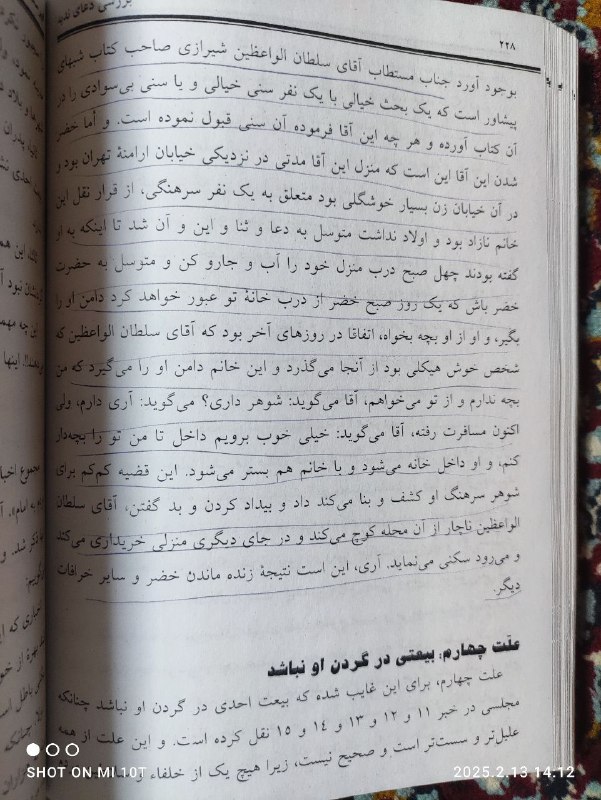 بررسی دعای ندبه
۲۲۸
بوجود آورد جناب مستطاب آقای سلطان الواعظین شیرازی صاحب کتاب شبهای
پیشاور است که یک بحث خیالی با یک نفر سنی خیالی و یا سنی بی‌سوادی را در
آن کتاب آورده و هر چه این آقا فرموده آن سنی قبول نموده است. و أما خضر
شدن این آقا این است که منزل این آقا مدتی در نزدیکی خیابان ارامنهٔ تهران بود و
در آن خیابان زن بسیار خوشگلی بود متعلق به یک نفر سرهنگی، از قرار نقل این
خانم نازاد بود و اولاد نداشت متوسل به دعا و ثنا و این و آن شد تا اینکه به او
گفته بودند چهل صبح درب منزل خود را آب و جارو کن و متوسل به حضرت
خضر باش که یک روز صبح خضر از درب خانهٔ تو عبور خواهد کرد دامن او را
بگیر، و او از او بچه بخواه، اتفاقا در روزهای آخر بود که آقای سلطان الواعظین که
شخص خوش هیکلی بود از آنجا می‌گذرد و این خانم دامن او را می‌گیرد که من
بچه ندارم و از تو می‌خواهم، آقا می‌گوید: شوهر داری؟ می‌گوید: آری دارم، ولی
اکنون مسافرت رفته، آقا می‌گوید: خیلی خوب برویم داخل تا من تو را بچه‌دار
کنم، و او داخل خانه می‌شود و با خانم هم بستر می‌شود. این قضیه کم‌کم برای
شوهر سرهنگ او کشف و بنا می‌کند داد و بیداد کردن و بد گفتن، آقای سلطان
الواعظین ناچار از آن محله کوچ می‌کند و در جای دیگری منزلی خریداری می‌کند
و می‌رود سکنی می‌نماید. آری، این است نتیجهٔ زنده ماندن خضر و سایر خرافات
دیگر.
علّت چهارم: بیعتی در گردن او نباشد
علت چهارم، برای این غایب شده که بیعت احدی در گردن او نباشد چنانکه
مجلسی در خبر ۱۱ و ۱۲ و ۱۳ و ۱۴ و ۱۵ نقل کرده است. و این علت از همه
علیل‌تر و سست‌تر است و صحیح نیست، زیرا هیچ یک از خلفاء
SHOT ON MI 10T
2025.2.13 14:12